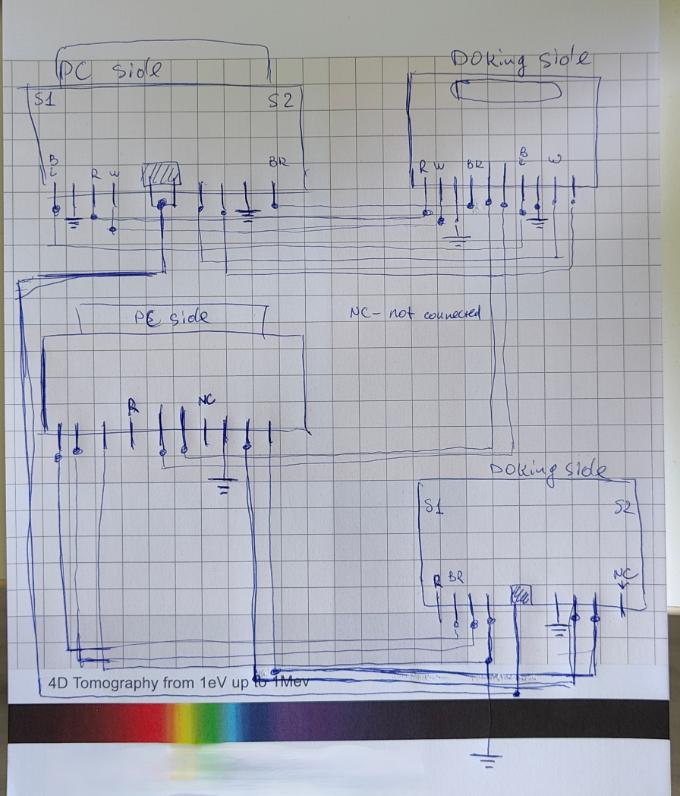 PC side
DOking side
S1
S2
BL
R
W
BR
R
W
BR
BL
W
PC side
NC - not connected
R
NC
DOking side
S1
S2
R
BR
NC
4D Tomography from 1eV up to 1Mev